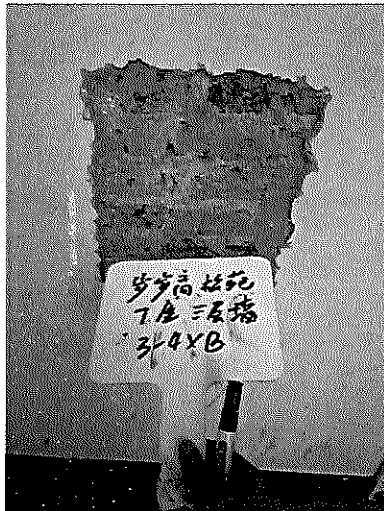 步步高林苑
7座三层墙
3-4XB